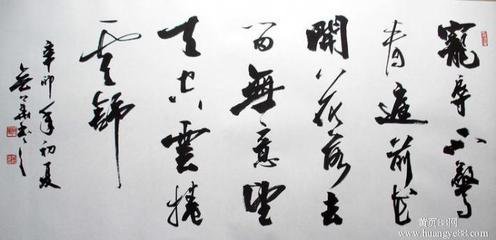 寵辱不驚
看庭前花
開花落去
留無意望
天空雲捲
雲舒
辛卯年初夏
黄页88网
www.huangye88.com